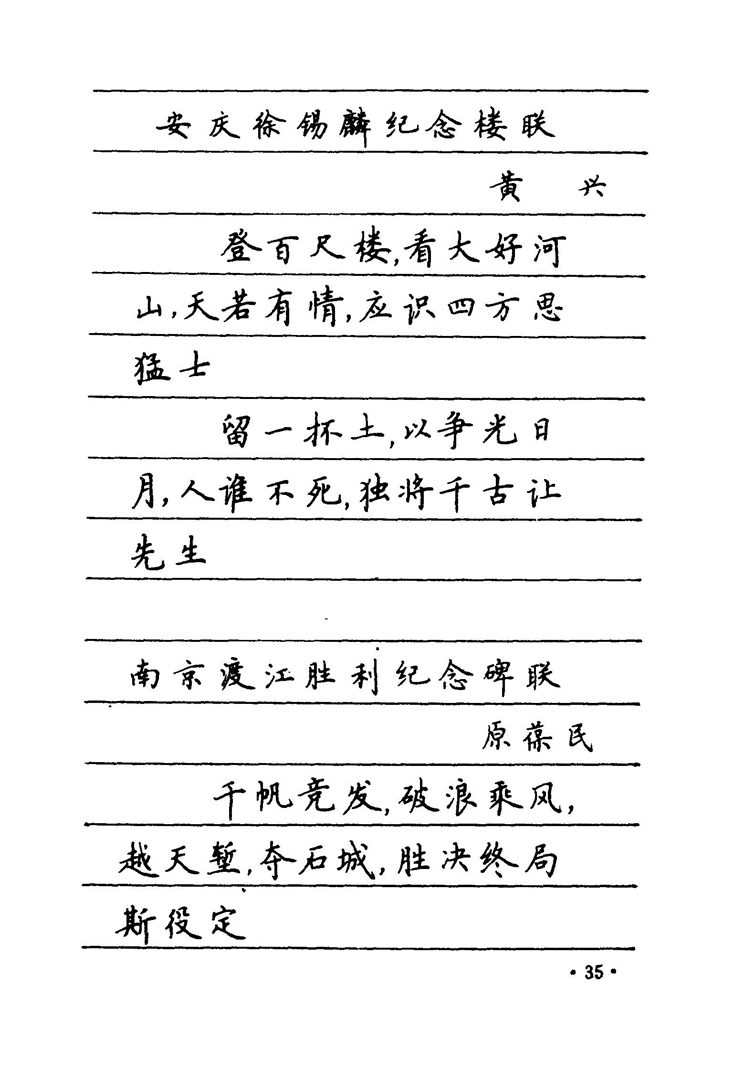 安庆徐锡麟纪念楼联
黄 兴
登百尺楼,看大好河
山,天若有情,应识四方思
猛士
留一抔土,以争光日
月,人谁不死,独将千古让
先生
南京渡江胜利纪念碑联
原葆民
千帆竞发,破浪乘风,
越天堑,夺石城,胜决终局
斯役定
·35·